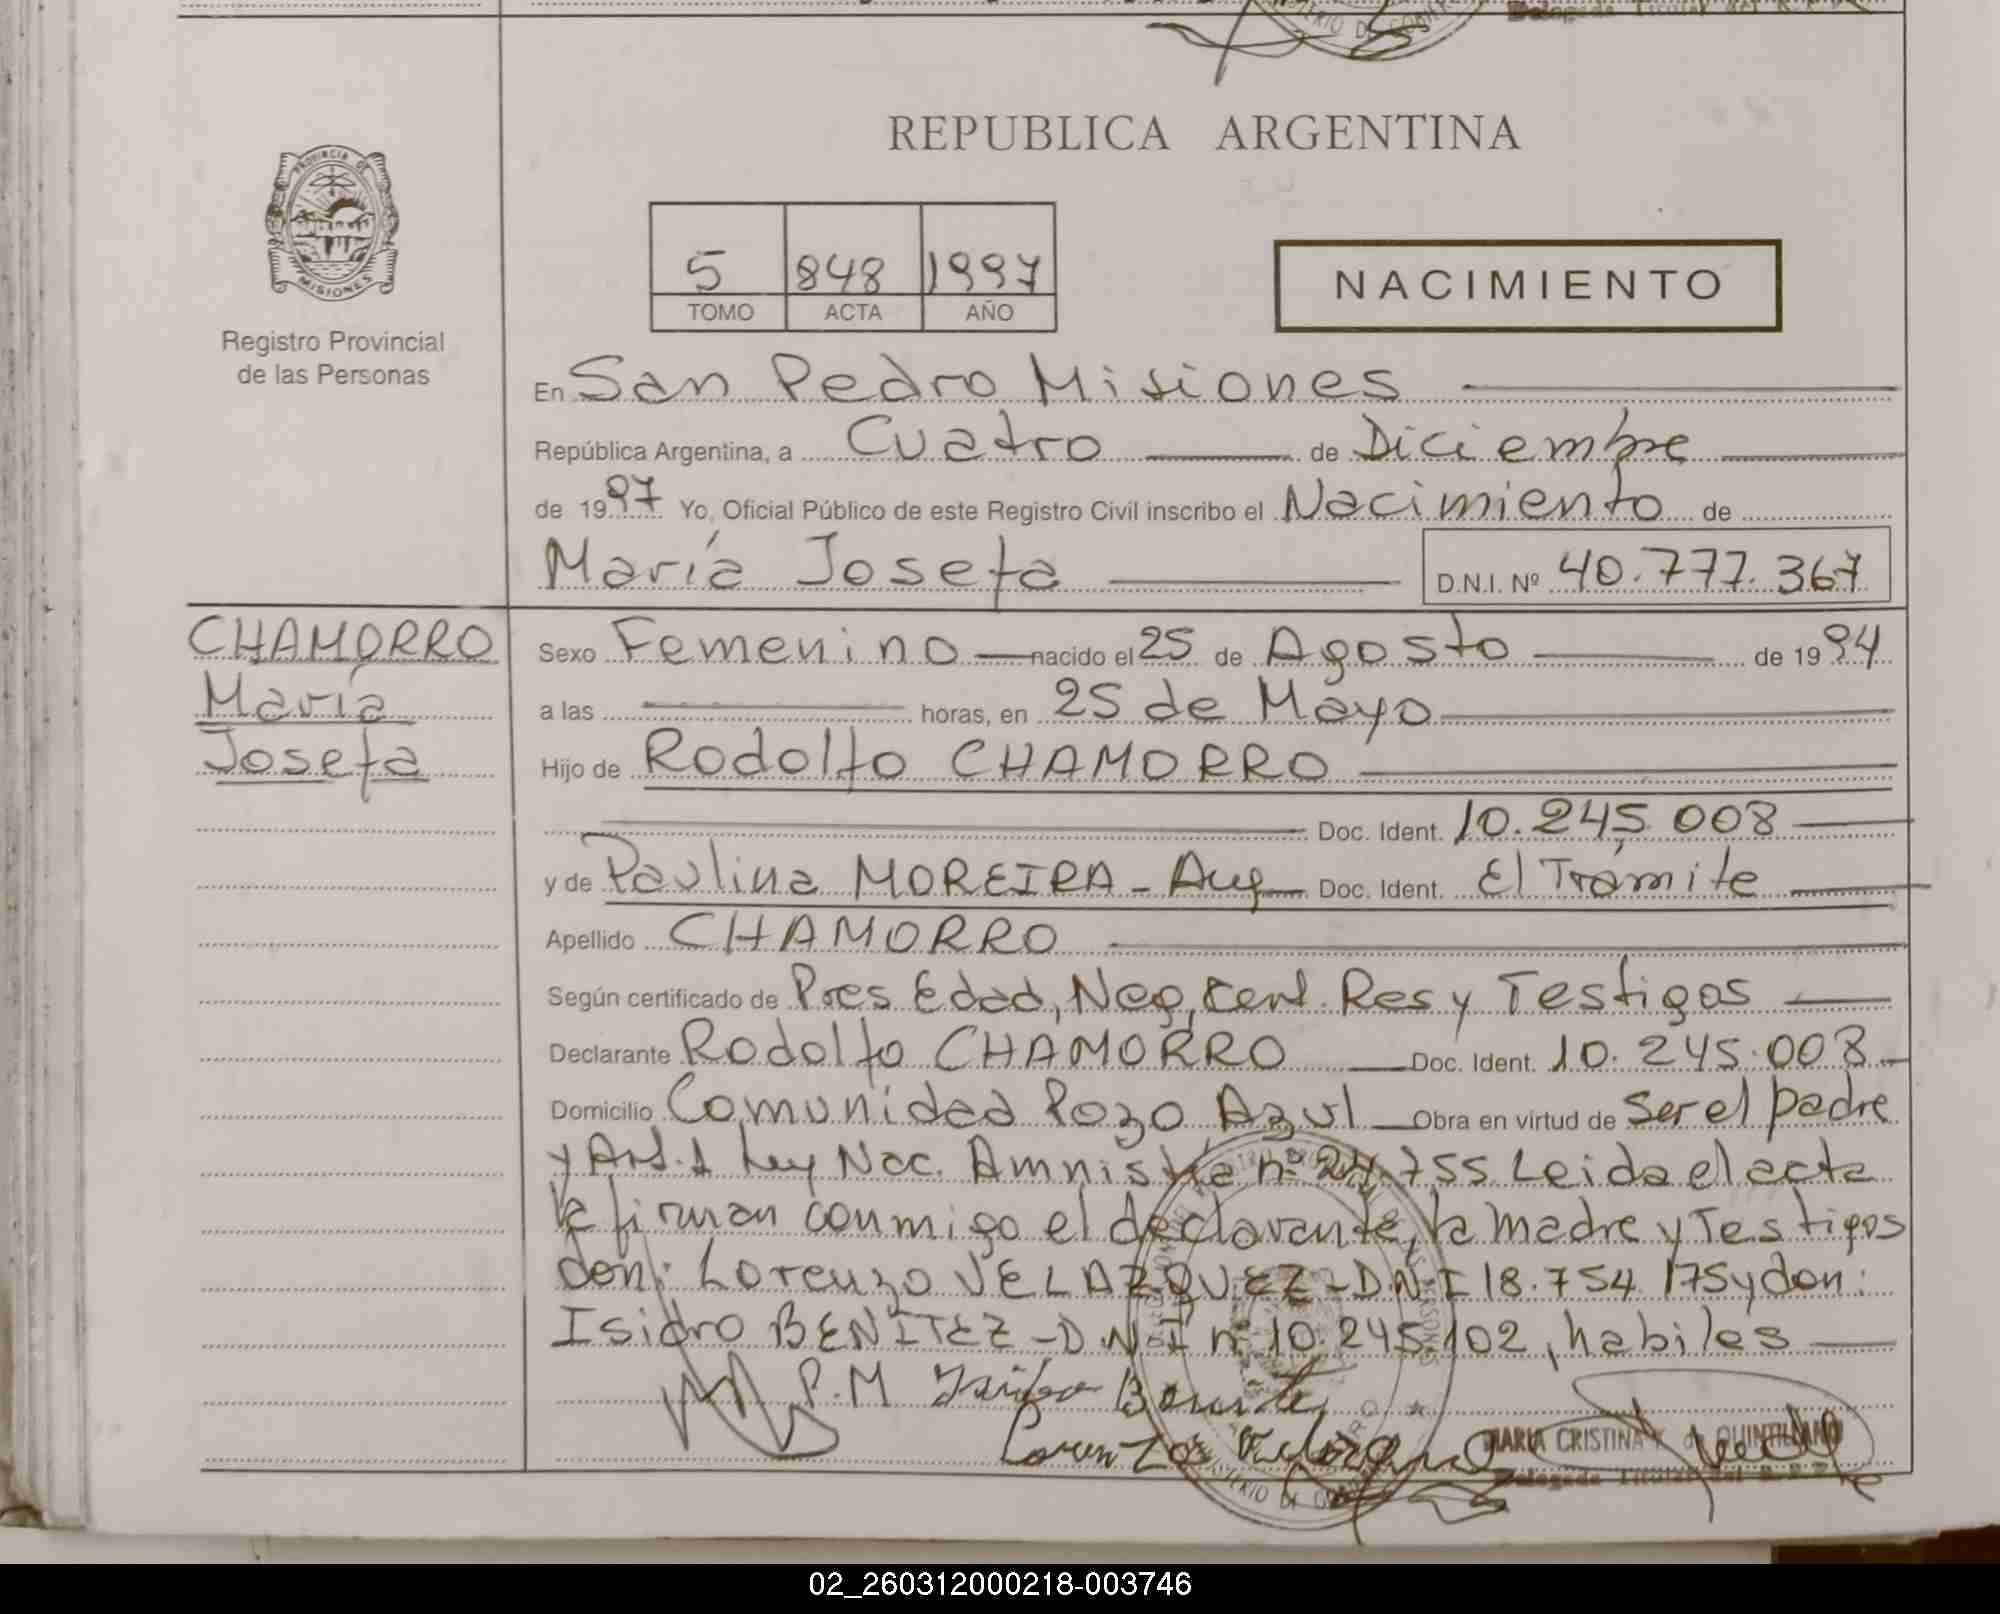 Delegada Titular del R.P.P.
REPUBLICA ARGENTINA
PROVINCIA DE
MISIONES
Registro Provincial
de las Personas
5 848 1997
TOMO ACTA AÑO
NACIMIENTO
En San Pedro Misiones
República Argentina, a Cuatro de Diciembre
de 1997 Yo, Oficial Público de este Registro Civil inscribo el Nacimiento de
María Josefa D.N.I. Nº 40.777.367
CHAMORRO
María
Josefa
Sexo Femenino nacido el 25 de Agosto de 1994
a las horas, en 25 de Mayo
Hijo de Rodolfo CHAMORRO
Doc. Ident. 10.245.008
y de Paulina MOREIRA - Doc. Ident. El Trámite
Apellido CHAMORRO
Según certificado de Pres Edad, Neg, Cert. Res y Testigos
Declarante Rodolfo CHAMORRO Doc. Ident. 10.245.008
Domicilio Comunidad Pozo Azul Obra en virtud de Ser el padre
y Art. 1 Ley Nac. Amnistía nº 24.755 Leida el acta
la firman conmigo el declarante, la madre y Testigos
don: Lorenzo VELAZQUEZ - D.N.I 18.754.175 y don:
Isidro BENÍTEZ - D.N.I nº 10.245.102, habiles
P.M
MARIA CRISTINA K. de QUINTILIANO
Delegada Titular del R.P.P.
02_260312000218-003746